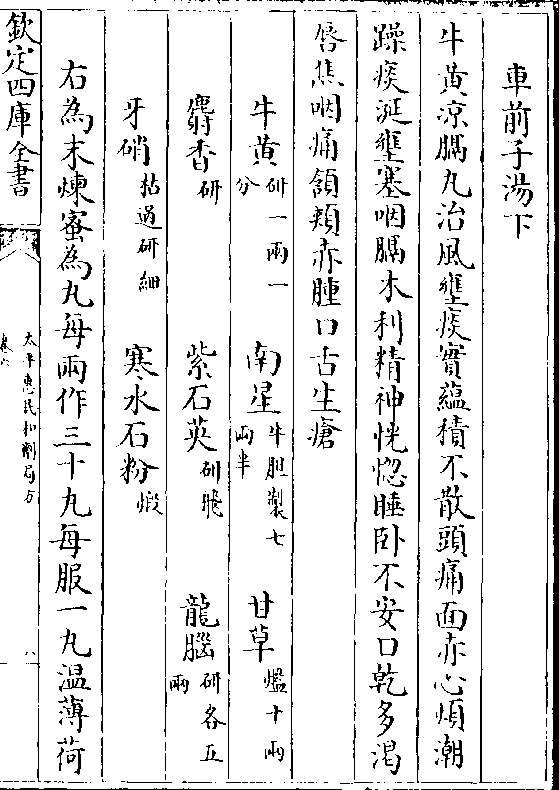 車前子湯下
牛黄涼膈丸治風壅痰實藴積不散頭痛面赤心煩潮
躁痰涎壅塞咽膈不利精神恍惚睡卧不安口乾多渴
唇焦咽痛頷頰赤腫口舌生瘡
牛黄研一兩一分 南星牛胆製七兩半 甘草爁十兩
麝香研 紫石英研飛 龍腦研各五兩
牙硝枯過研細 寒水石粉煅
右為末煉蜜為丸每兩作三十丸每服一丸温薄荷
欽定四庫全書
太平惠民和劑局方
卷六
八